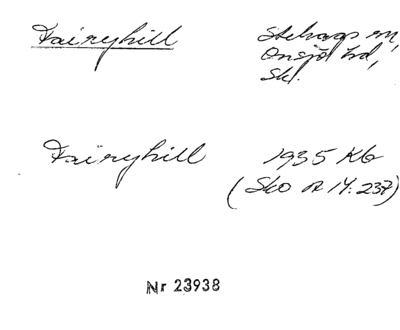 Fairyhill
Stehags sn,
Onsjö hd,
Sk.
Fairyhill
1935 Kb
(SkO R 14:237)
Nr 23938